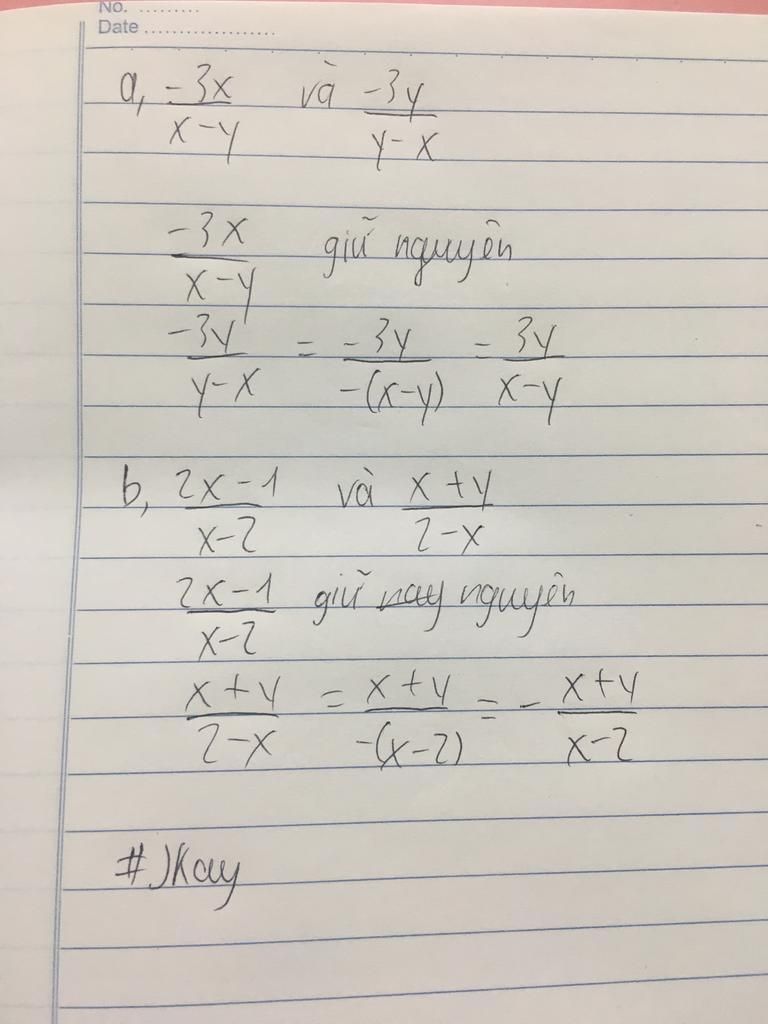 No. .........
Date ...................
a, -3x/x-y và -3y/y-x
-3x/x-y giữ nguyên
-3y/y-x = -3y/-(x-y) = 3y/x-y
b, 2x-1/x-2 và x+y/2-x
2x-1/x-2 giữ nguyên
x+y/2-x = x+y/-(x-2) = - x+y/x-2
#JKay